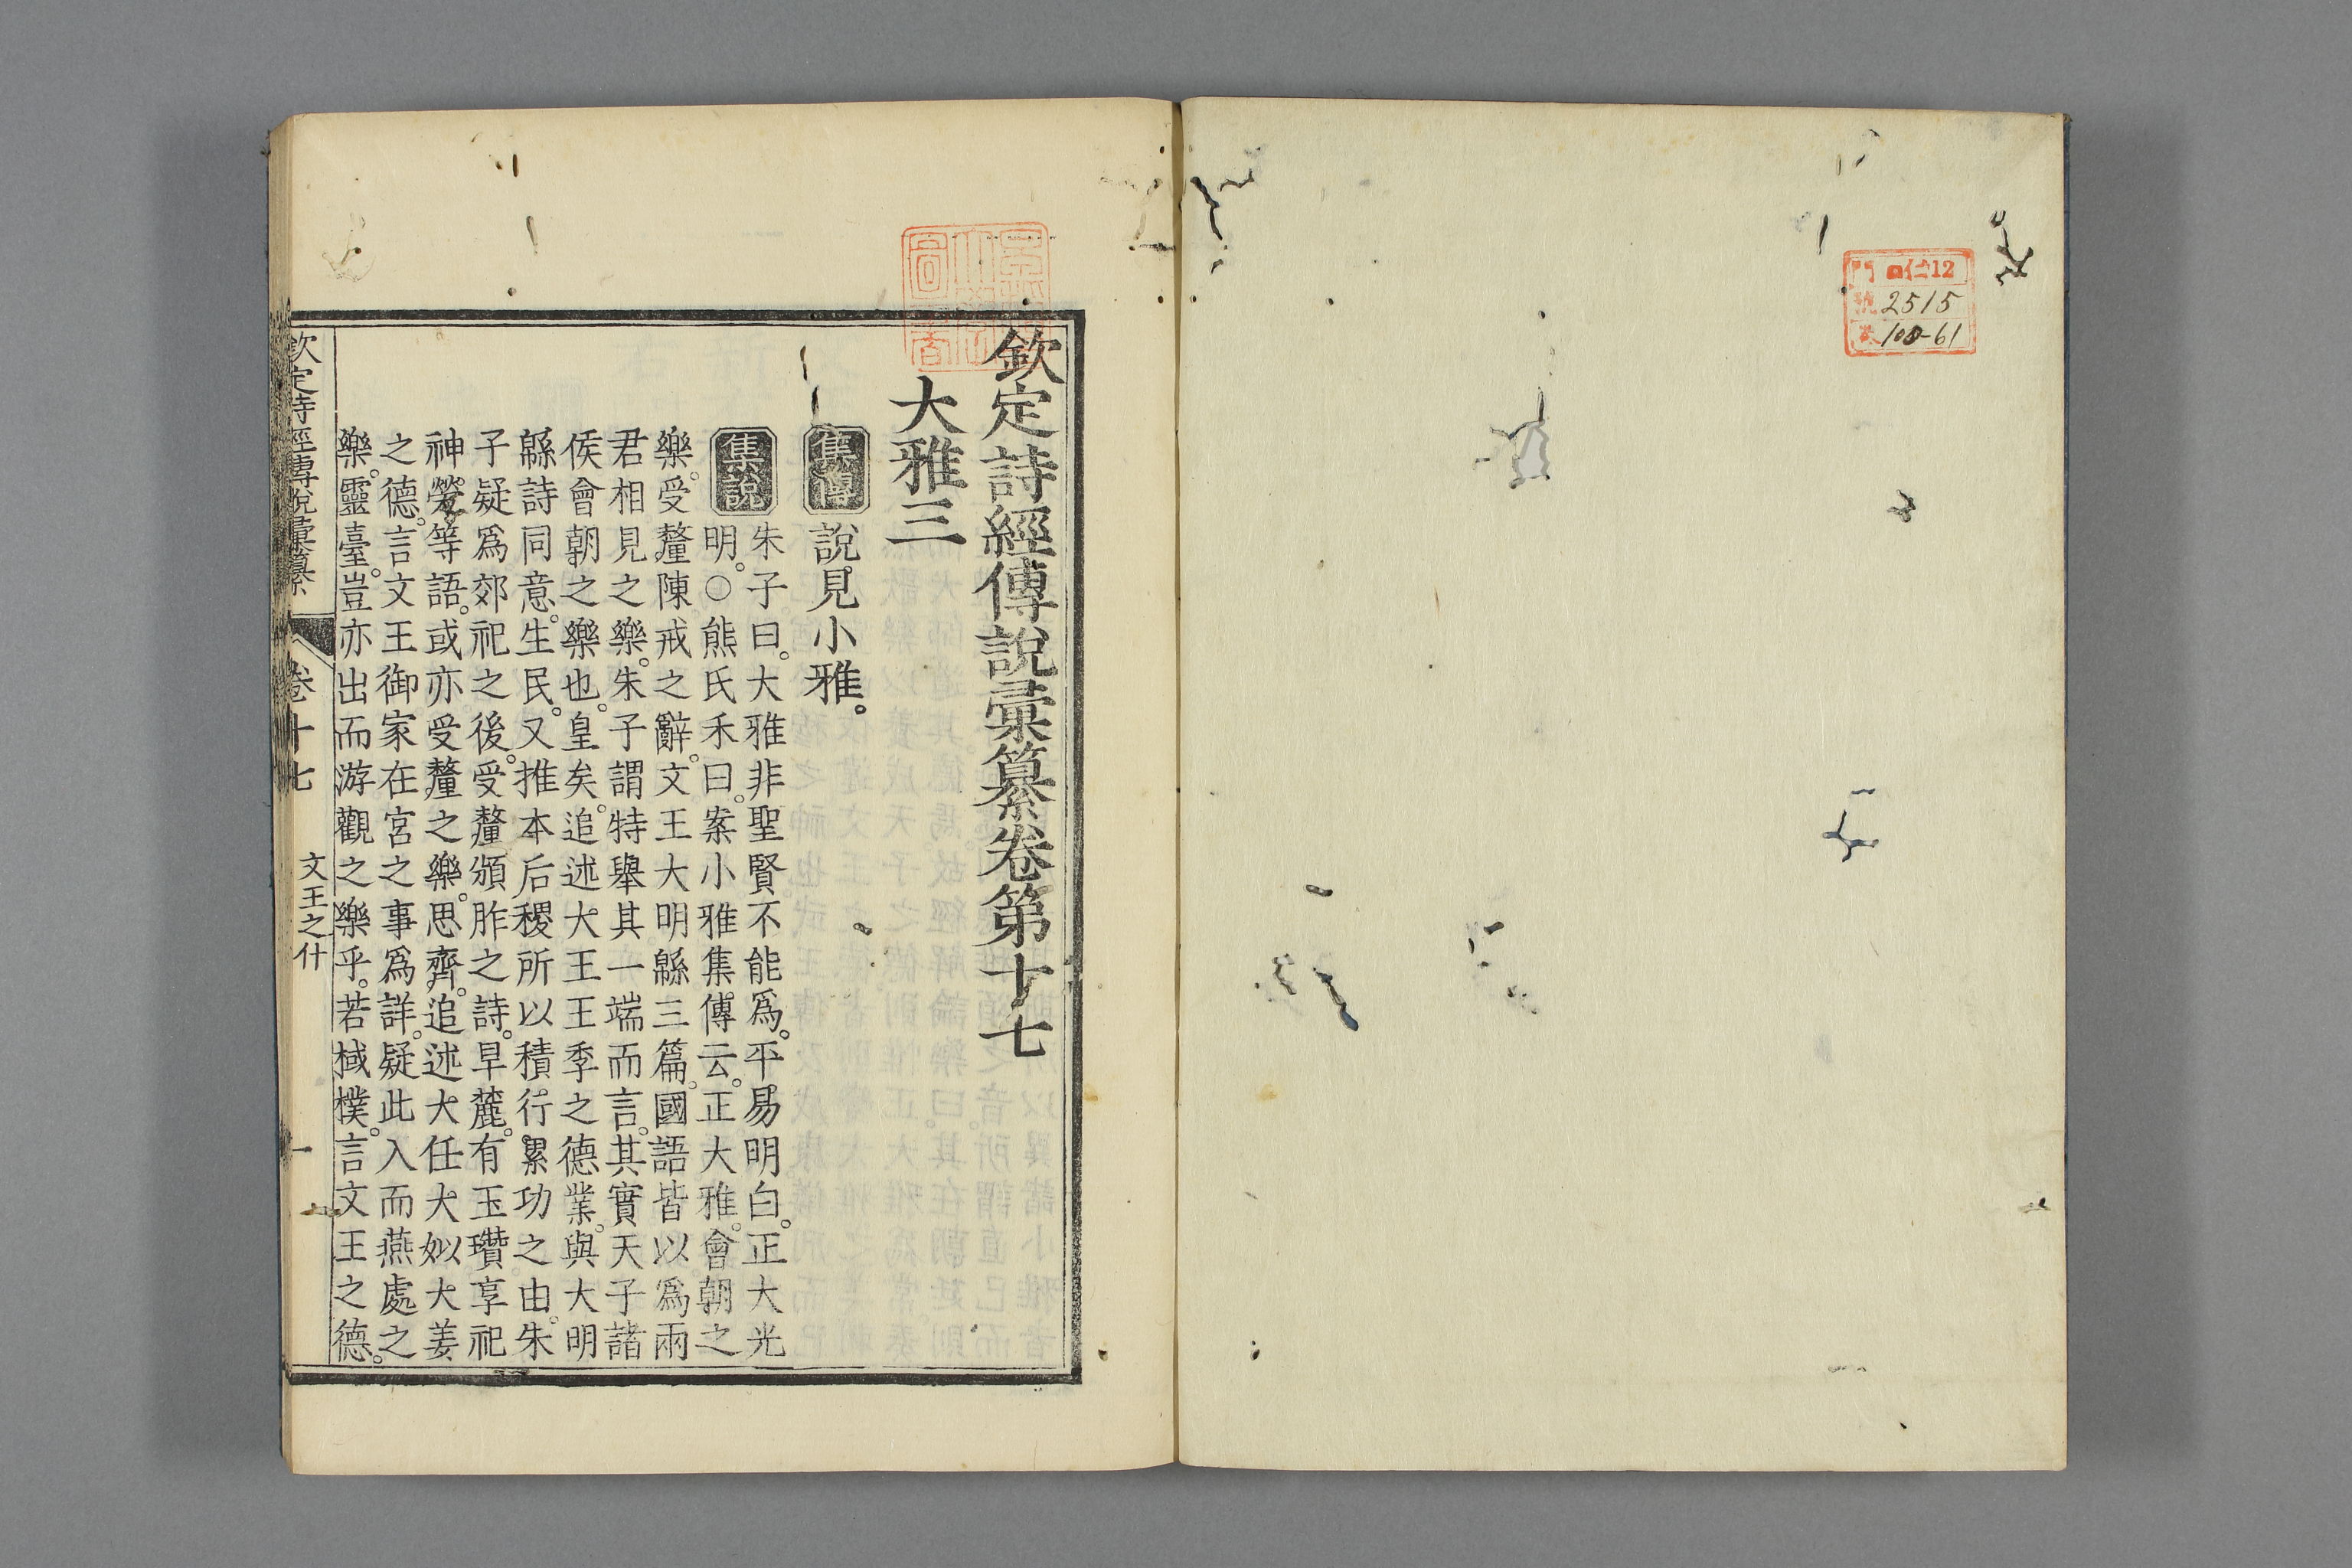 門 口仁12
號 2515
卷 100-61
欽定詩經傳說彙纂卷第十七
大雅三
集傳 說見小雅。
集說 朱子曰。大雅非聖賢不能爲。平易明白。正大光
明。○熊氏禾曰。案小雅集傳云。正大雅。會朝之
樂。受釐陳戒之辭。文王大明緜三篇。國語皆以爲兩
君相見之樂。朱子謂特舉其一端而言。其實天子諸
侯會朝之樂也。皇矣。追述大王王季之德業。與大明
緜詩同意。生民。又推本后稷所以積行累功之由。朱
子疑爲郊祀之後。受釐頒胙之詩。旱麓。有玉瓚享祀
神勞等語。或亦受釐之樂。思齊。追述大任大姒大姜
之德。言文王御家在宮之事爲詳。疑此入而燕處之
樂。靈臺。豈亦出而游觀之樂乎。若棫樸。言文王之德。
欽定詩經傳說彙纂 卷十七 文王之什 一